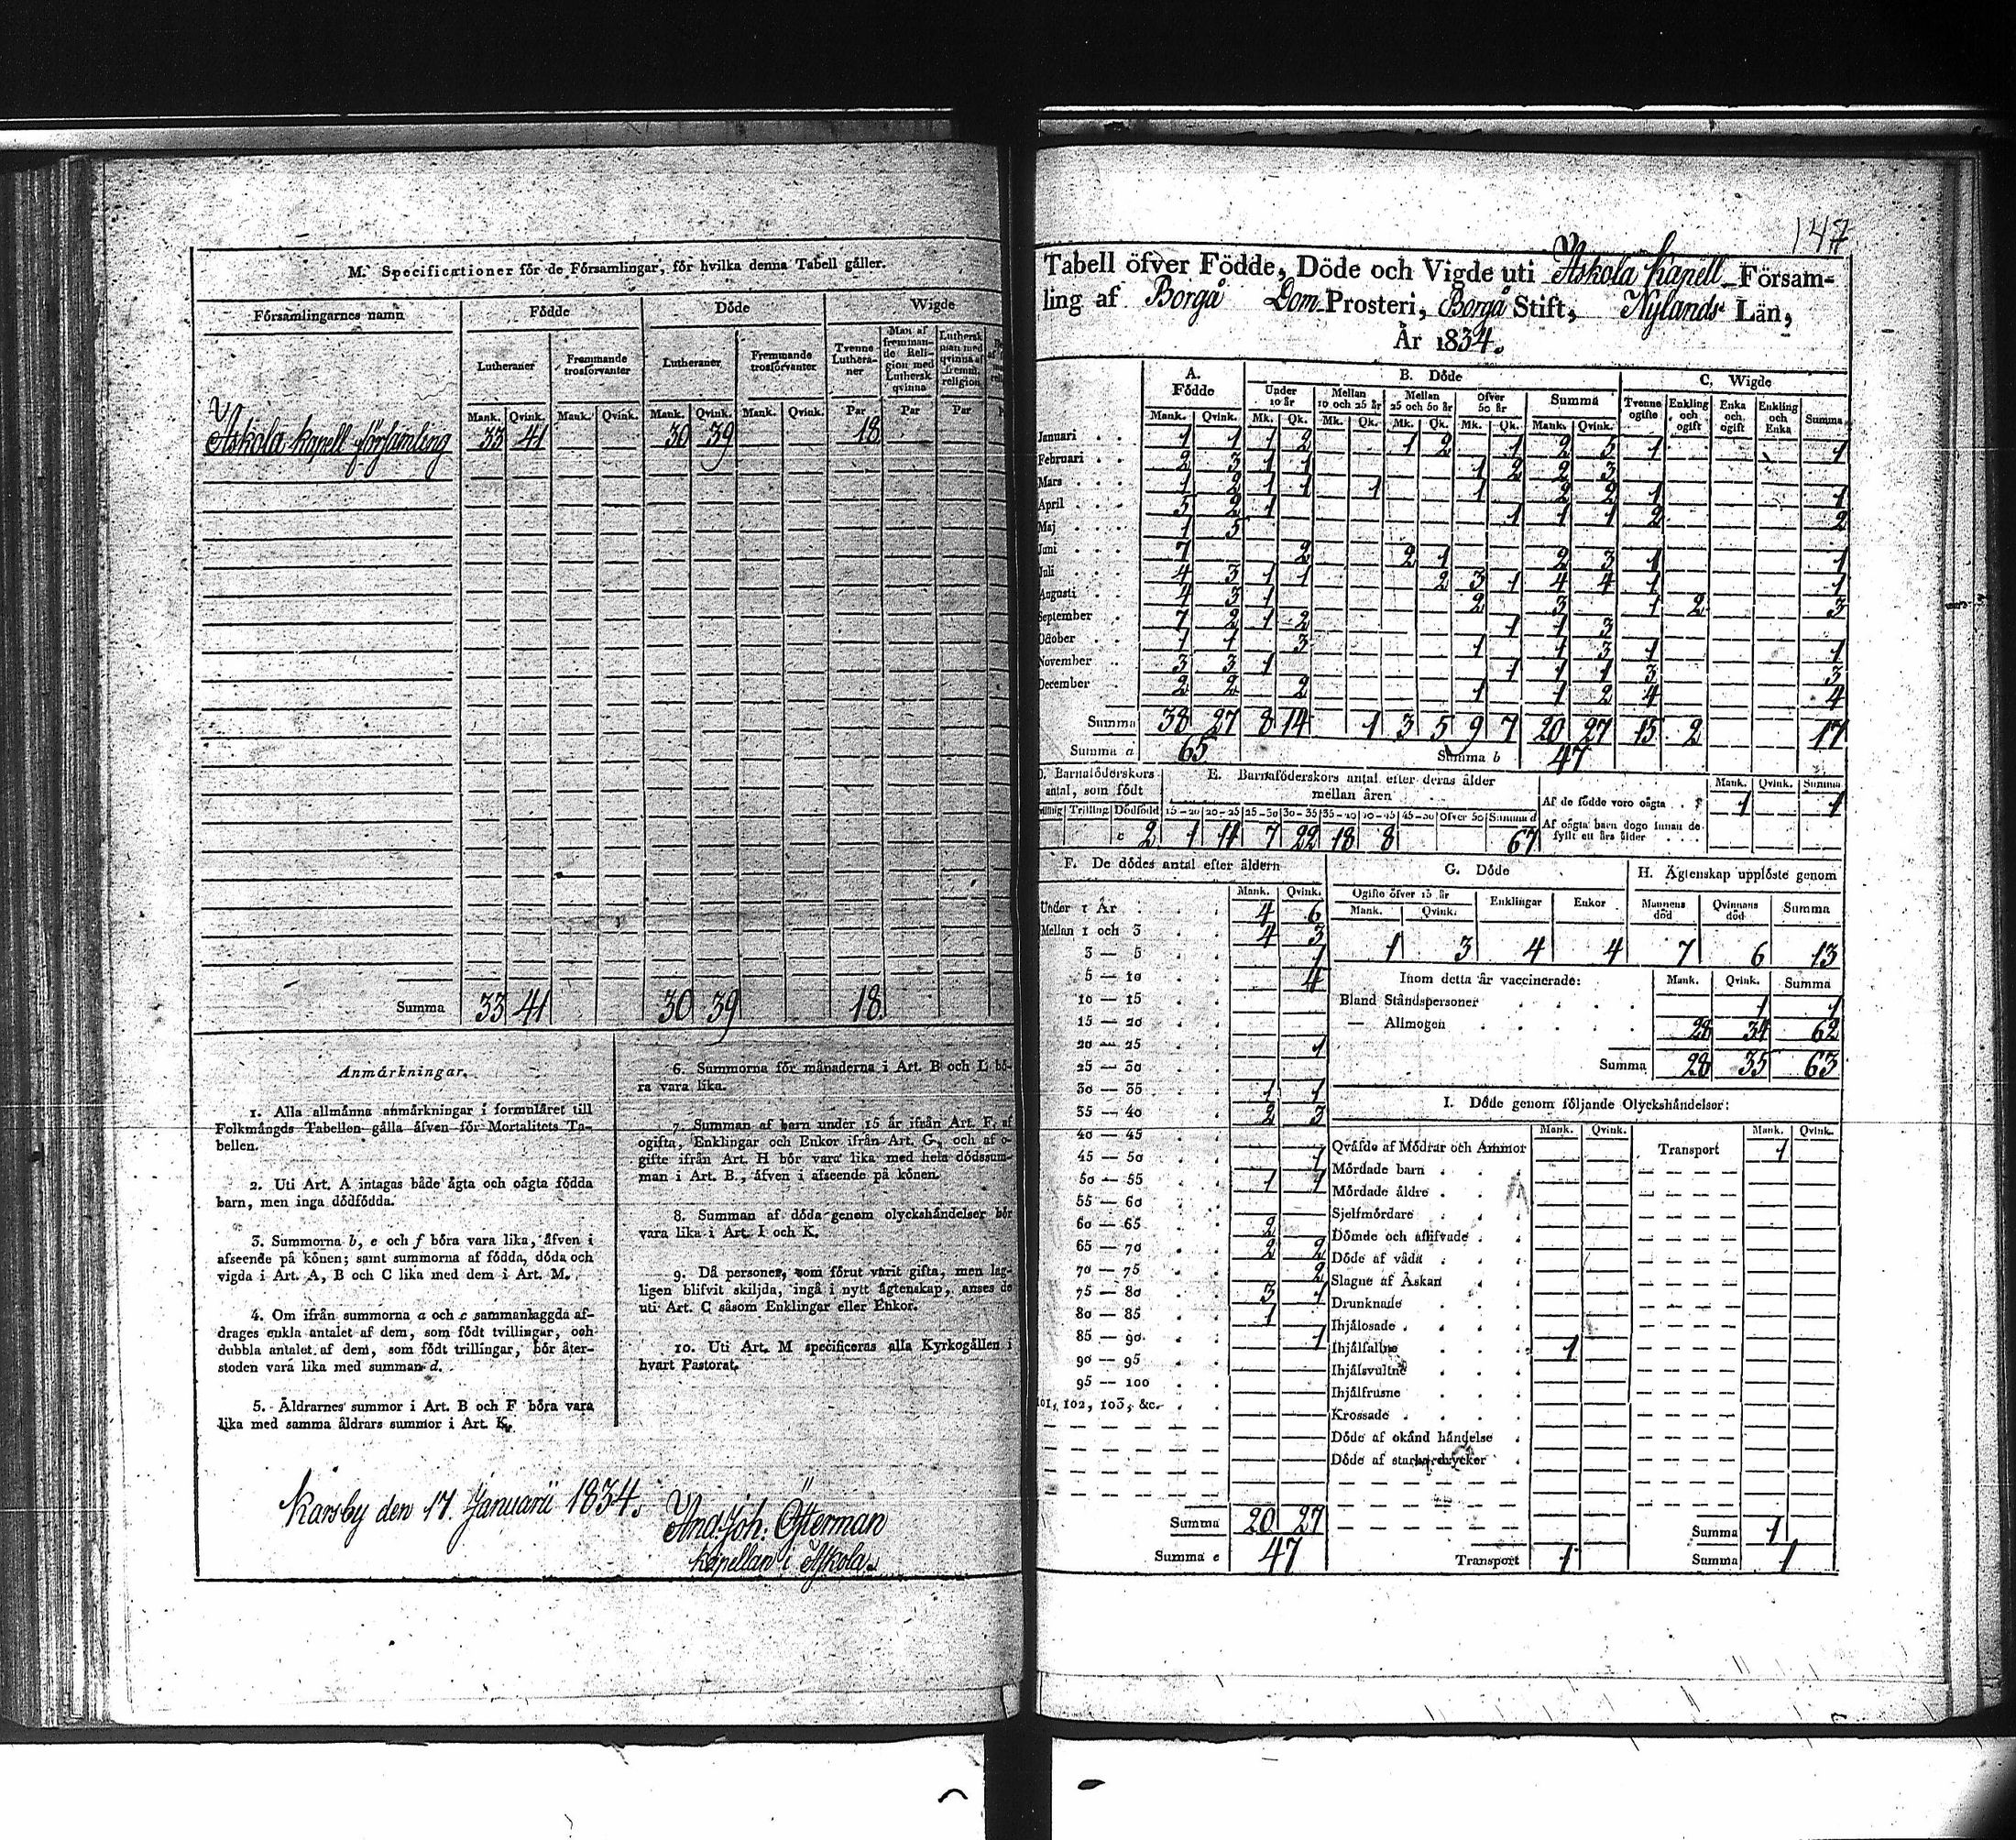 M. Specificationer för de Församlingar, för hvilka denna Tabell gäller.
Församlingarnes namn Födde Döde Wigde
Lutheraner Fremmande trosförvanter Lutheraner Fremmande trosförvanter Tvenne Lutheraner Man af fremmande Religion med Luthersk qvinna Luthersk man med qvinna af fremm. religion
Mank. Qvink. Mank. Qvink. Mank. Qvink. Mank. Qvink. Par Par Par
Askola kapell församling 33 41 30 39 18
Summa 33 41 30 39 18
Anmärkningar.
1. Alla allmänna anmärkningar i formuläret till
Folkmängds Tabellen gälla äfven för Mortalitets Ta-
bellen.
2. Uti Art. A intagas både ägta och oägta födda
barn, men inga dödfödda.
3. Summorna b, e och f böra vara lika, äfven i
afseende på könen; samt summorna af födda, döda och
vigda i Art. A, B och C lika med dem i Art. M.
4. Om ifrån summorna a och c sammanlaggda af-
drages enkla antalet af dem, som födt tvillingar, och
dubbla antalet af dem, som födt trillingar, bör åter-
stoden vara lika med summan d.
5. Åldrarnes summor i Art. B och F böra vara
lika med samma åldrars summor i Art. K.
6. Summorna för månaderna i Art. B och L bö-
ra vara lika.
7. Summan af barn under 15 år ifrån Art. F, af
ogifta, Enklingar och Enkor ifrån Art. G, och af o-
gifte ifrån Art. H bör vara lika med hela dödssum-
man i Art. B., äfven i afseende på könen.
8. Summan af döda genom olyckshändelser bör
vara lika i Art. I och K.
9. Då personer, som förut varit gifta, men lag-
ligen blifvit skiljda, ingå i nytt ägtenskap, anses de
uti Art. C såsom Enklingar eller Enkor.
10. Uti Art. M specificeras alla Kyrkogällen i
hvart Pastorat.
Karsby den 17. Januarii 1834.
And. Joh. Österman
Kapellan i Askola.
147
Tabell öfver Födde, Döde och Vigde uti Askola Kapell Försam-
ling af Borgå Dom-Prosteri, Borgå Stift, Nylands Län,
År 1834.
A. Födde B. Döde C. Wigde
Under 10 år Mellan 10 och 25 år Mellan 25 och 50 år Öfver 50 år Summa Tvenne ogifte Enkling och ogift Enka och ogift Enkling och Enka Summa
Mank. Qvink. Mk. Qk. Mk. Qk. Mk. Qk. Mk. Qk. Mank. Qvink.
Januari 1 1 1 2 1 2 1 2 5 1 1
Februari 2 3 1 1 1 2 2 3
Mars 1 2 1 1 1 1 2 2 1 1
April 5 2 1 1 1 1 2 2
Maj 1 5
Juni 7 2 2 1 2 3 1 1
Juli 4 3 1 1 2 3 1 4 4 1 1
Augusti 4 3 1 2 3 1 2 3
September 7 2 1 2 1 1 3
October 1 1 3 1 1 3 1 1
November 3 3 1 1 1 1 3 3
December 2 2 2 1 1 2 4 4
Summa 38 27 8 14 1 3 5 9 7 20 27 15 2 17
Summa a 65 Summa b 47
D. Barnaföderskors antal, som födt
E. Barnaföderskors antal efter deras ålder
mellan åren
Mank. Qvink. Summa
Trilling Dödfödd 15-20 20-25 25-30 30-35 35-40 40-45 45-50 Öfver 50 Summa d
c 2 1 11 7 22 18 8 67
Af de födde voro oägta 1 1
Af oägta barn dogo innan de
fyllt ett års ålder
F. De dödes antal efter åldern
Mank. Qvink.
Under 1 År 4 6
Mellan 1 och 3 4 3
3 — 5 1
5 — 10 4
10 — 15
15 — 20
20 — 25 1
25 — 30
30 — 35 1 1
35 — 40 2 3
40 — 45
45 — 50 1
50 — 55 1 1
55 — 60
60 — 65 2
65 — 70 2 2
70 — 75 2
75 — 80 3 1
80 — 85 1
85 — 90 1
90 — 95
95 — 100
101, 102, 103, &c.
Summa 20 27
Summa e 47
G. Döde
Ogifte öfver 15 år Enklingar Enkor
Mank. Qvink.
1 3 4 4
H. Ägtenskap upplöste genom
Mannens död Qvinnans död Summa
7 6 13
Inom detta år vaccinerade: Mank. Qvink. Summa
Bland Ståndspersoner 1 1
— Allmogen 28 34 62
Summa 28 35 63
I. Döde genom följande Olyckshändelser:
Mank. Qvink. Mank. Qvink.
Qväfde af Mödrar och Ammor Transport 1
Mördade barn
Mördade äldre
Sjelfmördare
Dömde och aflifvade
Döde af våda
Slagne af Åskan
Drunknade
Ihjälosade
Ihjälfallne 1
Ihjälsvultne
Ihjälfrusne
Krossade
Döde af okänd händelse
Döde af starka drycker
Summa 1
Transport 1 Summa 1